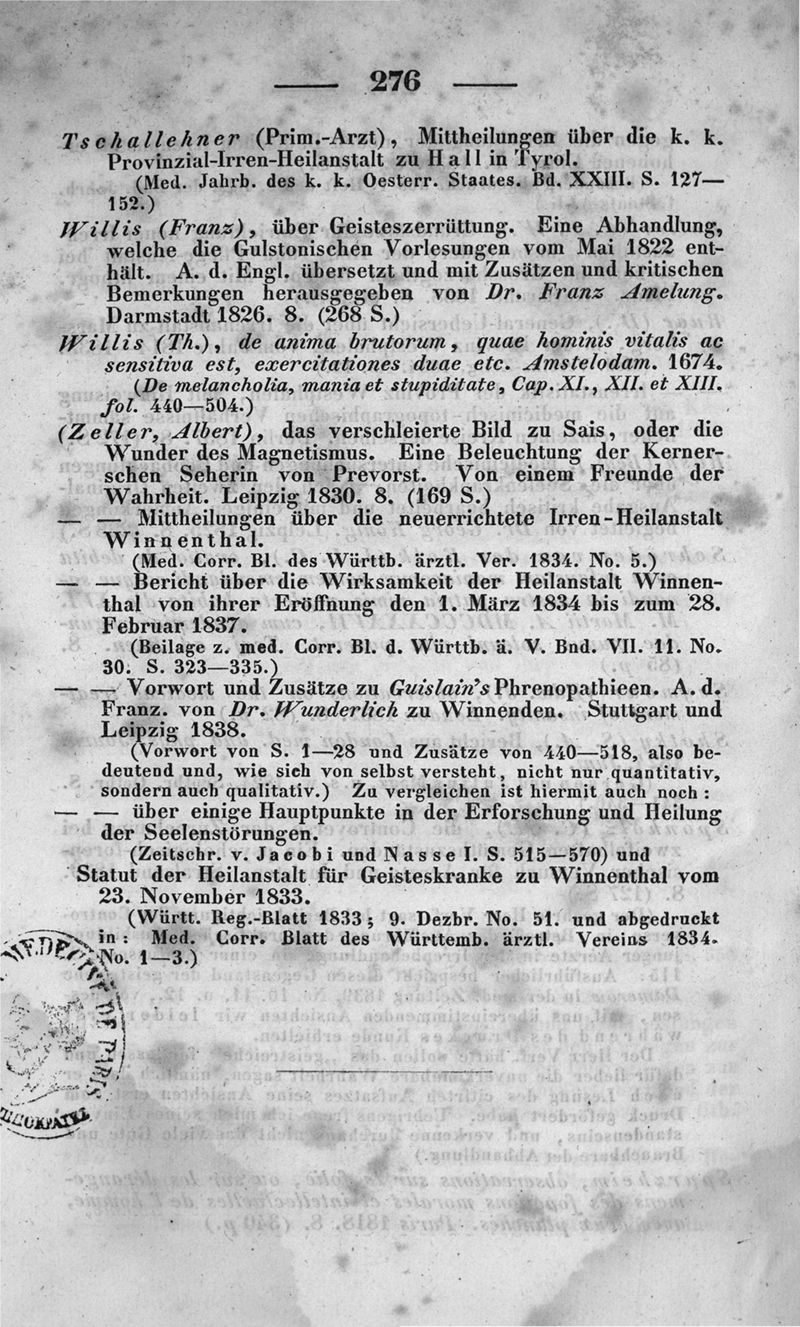 276
Tschallehner (Prim.-Arzt), Mittheilungen über die k. k.
Provinzial-Irren-Heilanstalt zu Hall in Tyrol.
(Med. Jahrb. des k. k. Oesterr. Staates. Bd. XXIII. S. 127—
152.)
Willis (Franz), über Geisteszerrüttung. Eine Abhandlung,
welche die Gulstonischen Vorlesungen vom Mai 1822 ent-
hält. A. d. Engl. übersetzt und mit Zusätzen und kritischen
Bemerkungen herausgegeben von Dr. Franz Amelung.
Darmstadt 1826. 8. (268 S.)
Willis (Th.), de anima brutorum, quae hominis vitalis ac
sensitiva est, exercitationes duae etc. Amstelodam. 1674.
(De melancholia, mania et stupiditate, Cap. XI., XII. et XIII.
fol. 440—504.)
(Zeller, Albert), das verschleierte Bild zu Sais, oder die
Wunder des Magnetismus. Eine Beleuchtung der Kerner-
schen Seherin von Prevorst. Von einem Freunde der
Wahrheit. Leipzig 1830. 8. (169 S.)
— — Mittheilungen über die neuerrichtete Irren-Heilanstalt
Winnenthal.
(Med. Corr. Bl. des Württb. ärztl. Ver. 1834. No. 5.)
— — Bericht über die Wirksamkeit der Heilanstalt Winnen-
thal von ihrer Eröffnung den 1. März 1834 bis zum 28.
Februar 1837.
(Beilage z. med. Corr. Bl. d. Württb. ä. V. Bnd. VII. 11. No.
30. S. 323—335.)
— — Vorwort und Zusätze zu Guislain's Phrenopathieen. A. d.
Franz. von Dr. Wunderlich zu Winnenden. Stuttgart und
Leipzig 1838.
(Vorwort von S. 1—28 und Zusätze von 440—518, also be-
deutend und, wie sich von selbst versteht, nicht nur quantitativ,
sondern auch qualitativ.) Zu vergleichen ist hiermit auch noch:
— — über einige Hauptpunkte in der Erforschung und Heilung
der Seelenstörungen.
(Zeitschr. v. Jacobi und Nasse I. S. 515—570) und
Statut der Heilanstalt für Geisteskranke zu Winnenthal vom
23. November 1833.
(Württ. Reg.-Blatt 1833; 9. Dezbr. No. 51. und abgedruckt
in: Med. Corr. Blatt des Württemb. ärztl. Vereins 1834.
No. 1—3.)